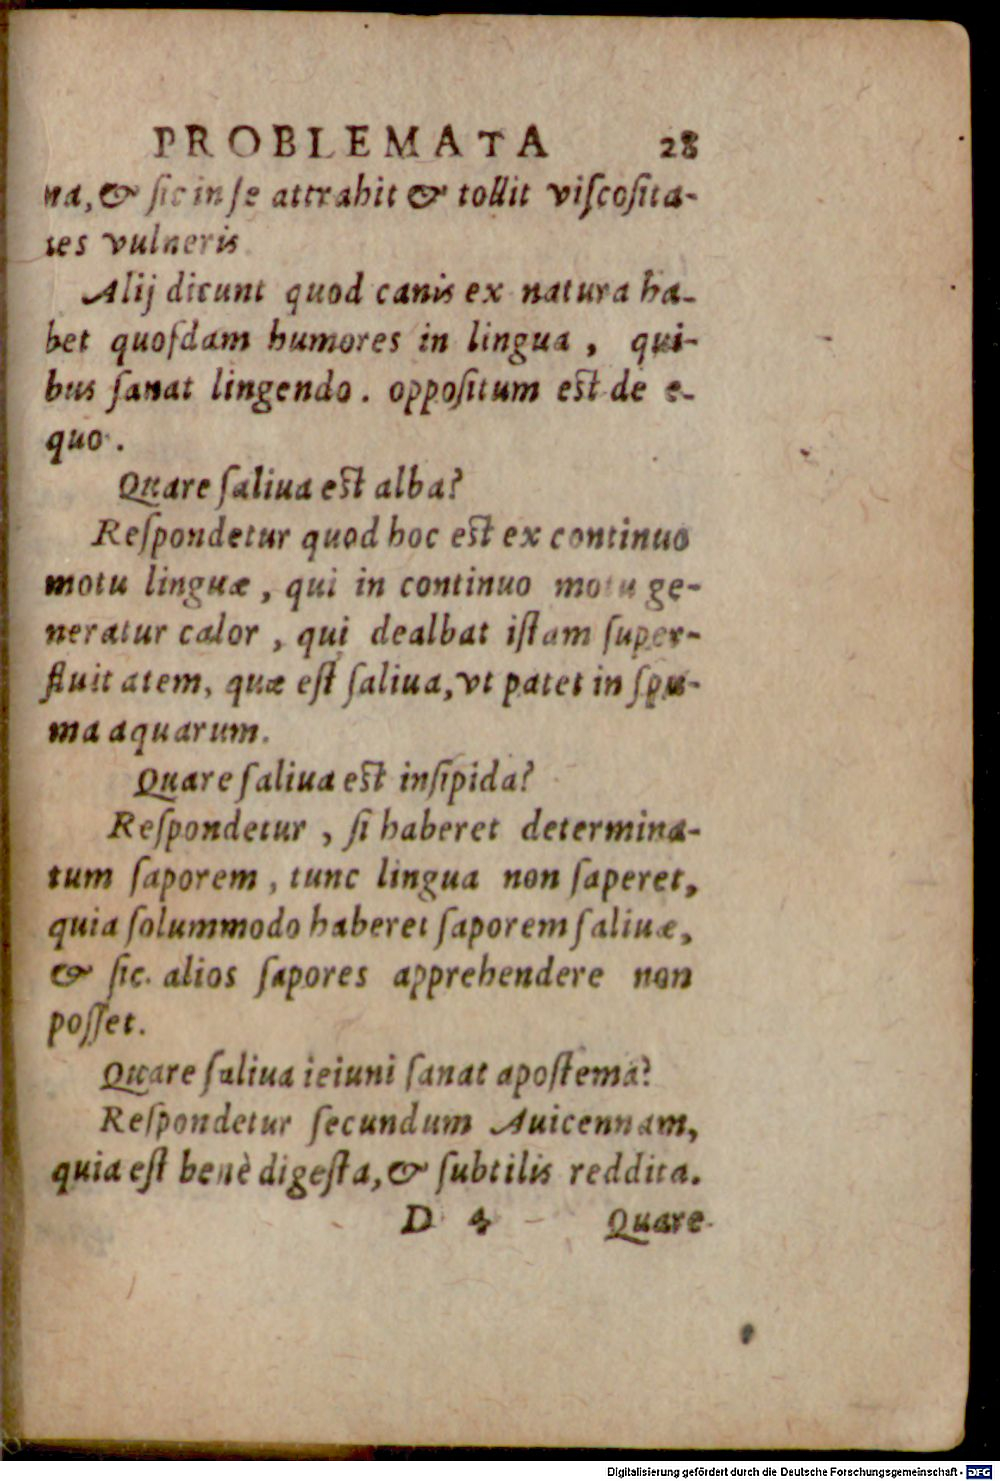 PROBLEMATA 28
na, & ſic in ſe attrahit & tollit viſcoſita-
tes vulneris
Alij dicunt quod canis ex natura ha-
bet quoſdam humores in lingua , qui-
bus ſanat lingendo. oppoſitum eſt de e-
quo.
Quare ſaliua eſt alba?
Reſpondetur quod hoc eſt ex continuo
motu linguæ, qui in continuo motu ge-
neratur calor , qui dealbat iſtam ſuper-
fluitatem, quæ eſt ſaliua, vt patet in ſpu-
ma aquarum.
Quare ſaliua eſt inſipida?
Reſpondetur , ſi haberet determina-
tum ſaporem , tunc lingua non ſaperet,
quia ſolummodo haberet ſaporem ſaliuæ,
& ſic. alios ſapores apprehendere non
poſſet.
Quare ſaliua ieiuni ſanat apoſtema?
Reſpondetur ſecundum Auicennam,
quia eſt benè digeſta, & ſubtilis reddita.
D 4 Quare
Digitalisierung gefördert durch die Deutsche Forschungsgemeinschaft - DFG